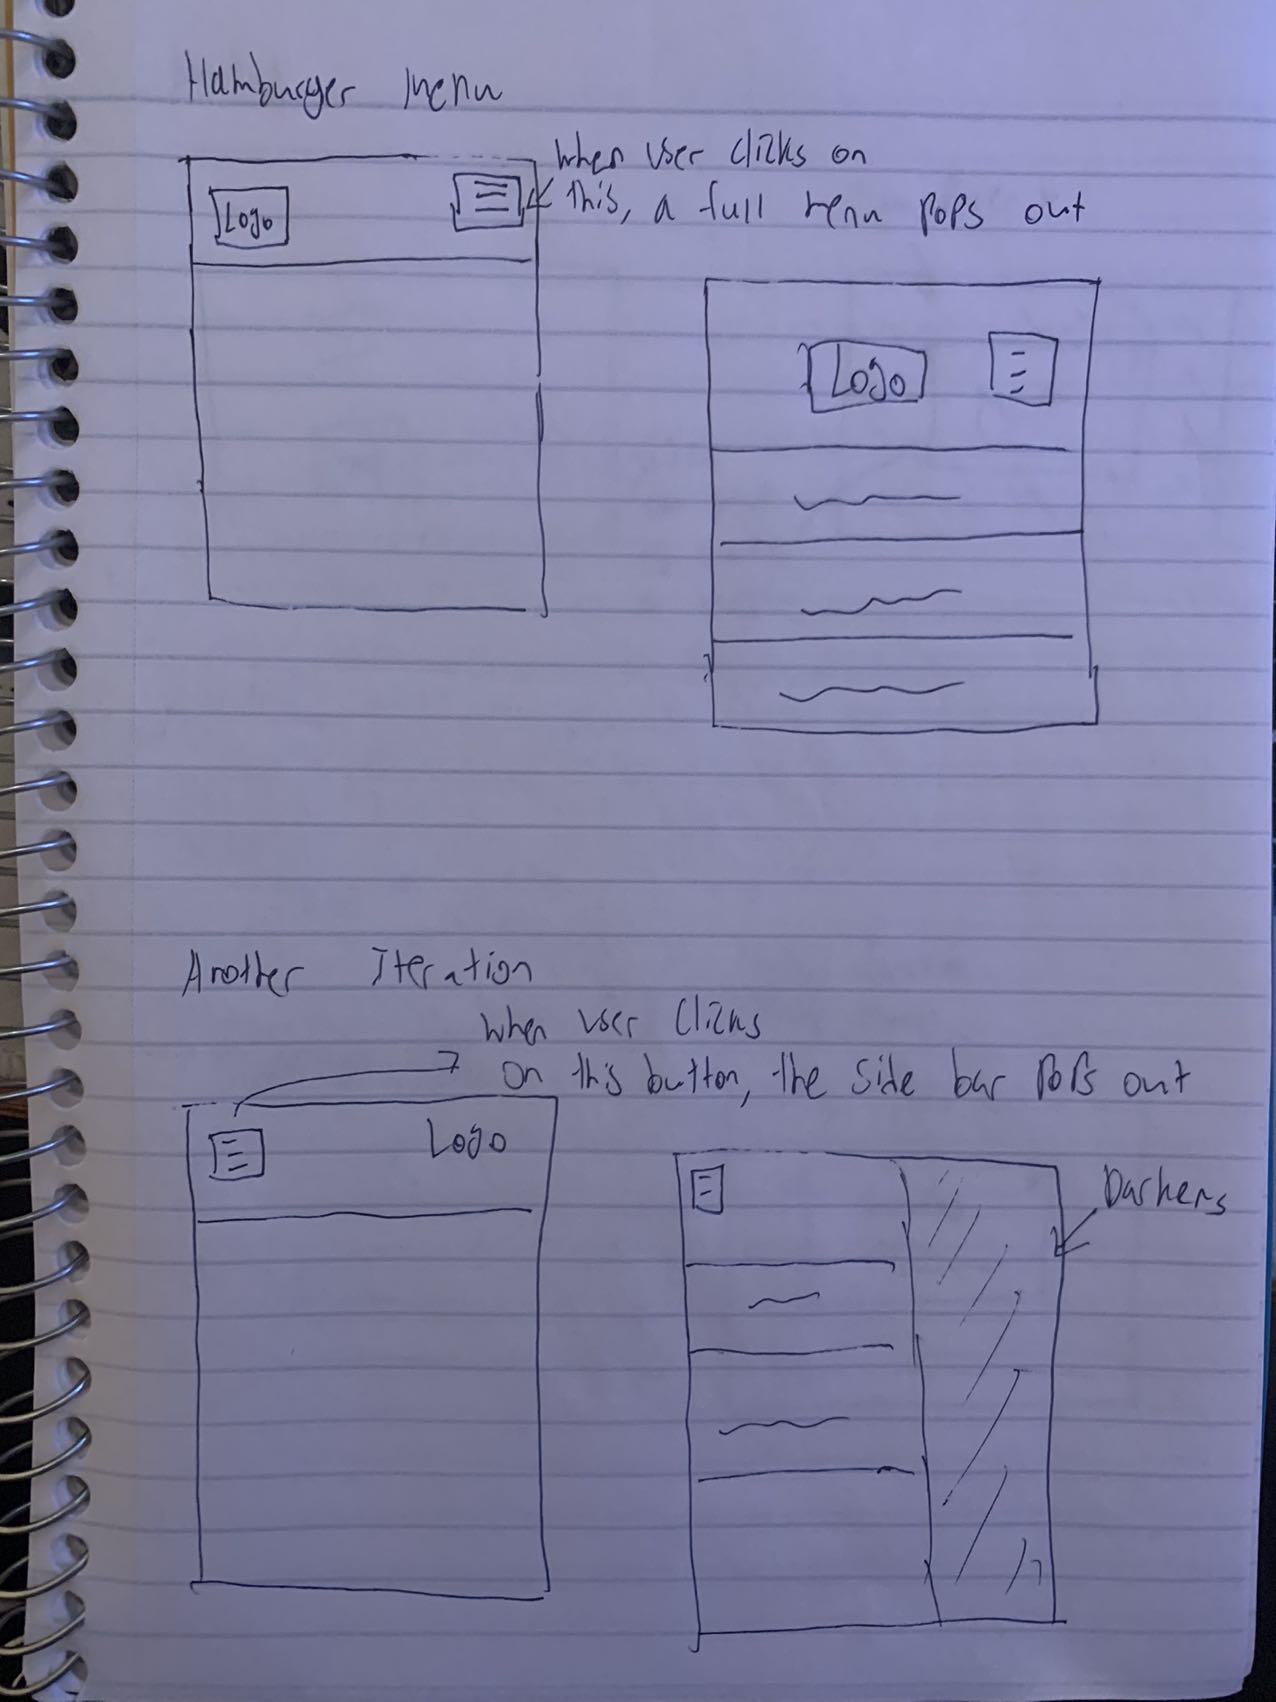 Hamburger Menu
When user clicks on
this, a full menu pops out
Logo
Logo
Another Iteration
When user clicks
on this button, the side bar pops out
Logo
Darkens